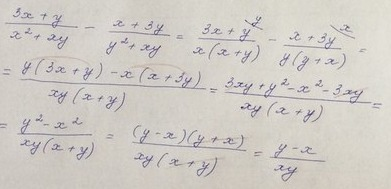 (3x + y)/(x² + xy) - (x + 3y)/(y² + xy) = (3x + y)/(x(x + y)) ^y - (x + 3y)/(y(y + x)) ^x =
= (y(3x + y) - x(x + 3y))/(xy(x + y)) = (3xy + y² - x² - 3xy)/(xy(x + y)) =
= (y² - x²)/(xy(x + y)) = ((y - x)(y + x))/(xy(x + y)) = (y - x)/(xy)